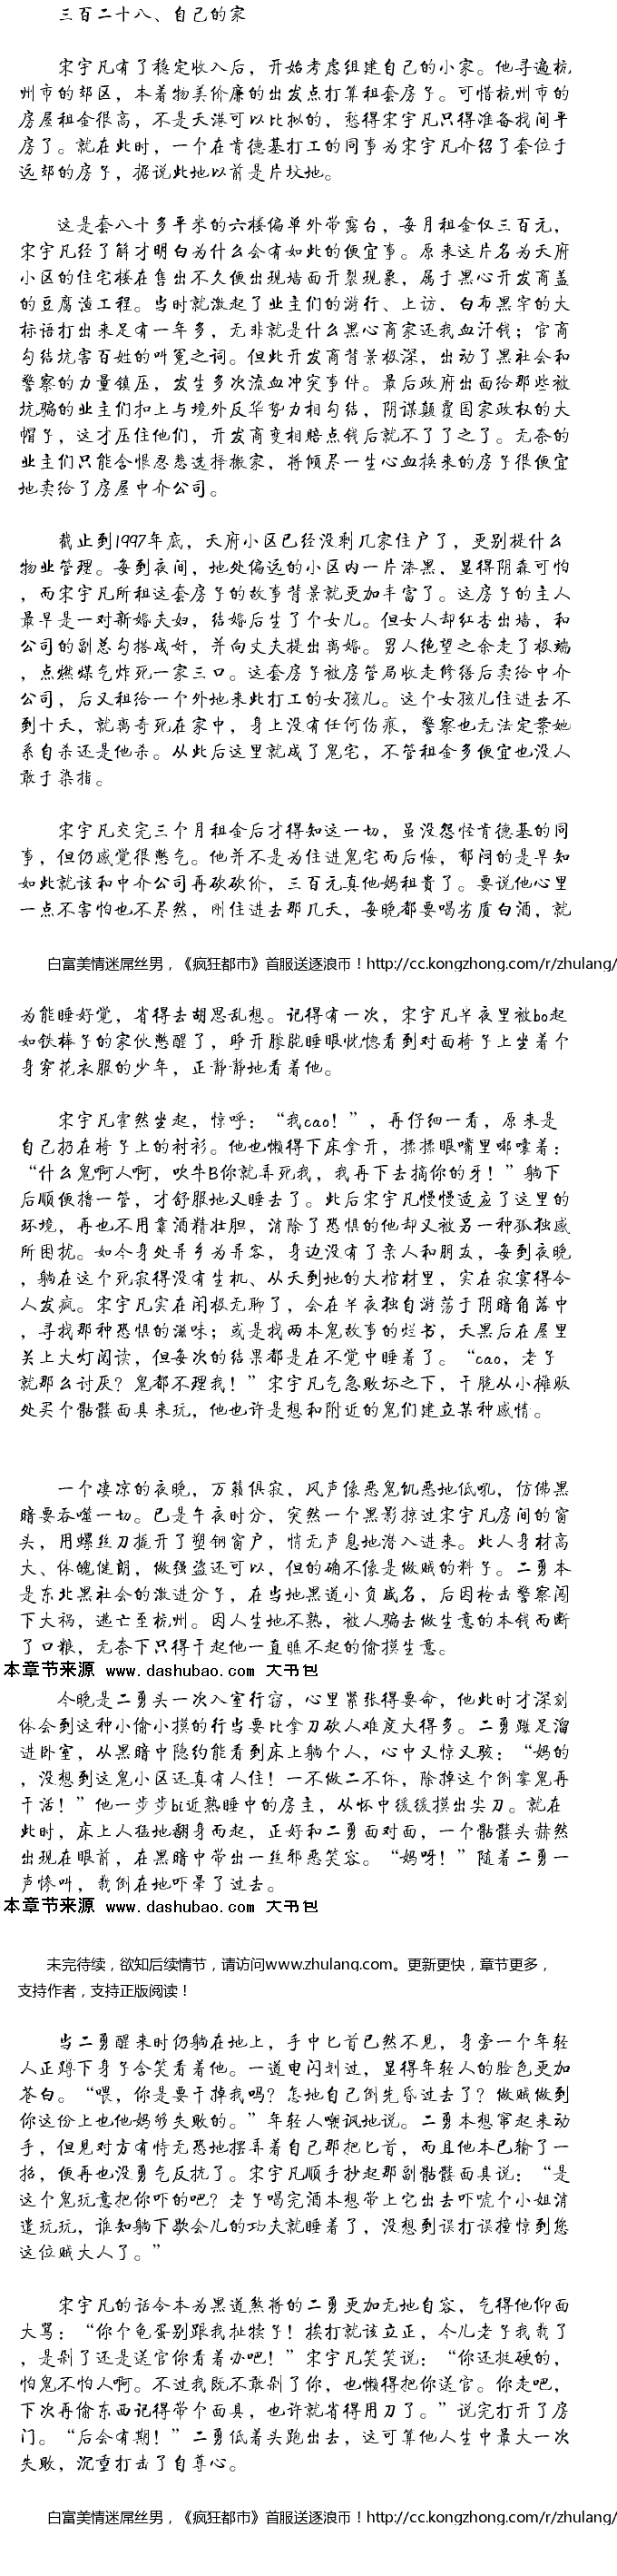 三百二十八、自己的家
宋宇凡有了稳定收入后，开始考虑组建自己的小家。他寻遍杭
州市的郊区，本着物美价廉的出发点打算租套房子。可惜杭州市的
房屋租金很高，不是天港可以比拟的，愁得宋宇凡只得准备找间平
房了。就在此时，一个在肯德基打工的同事为宋宇凡介绍了套位于
远郊的房子，据说此地以前是片坟地。
这是套八十多平米的六楼偏单外带露台，每月租金仅三百元，
宋宇凡经了解才明白为什么会有如此的便宜事。原来这片名为天府
小区的住宅楼在售出不久便出现墙面开裂现象，属于黑心开发商盖
的豆腐渣工程。当时就激起了业主们的游行、上访，白布黑字的大
标语打出来足有一年多，无非就是什么黑心商家还我血汗钱；官商
勾结坑害百姓的叫冤之词。但此开发商背景极深，出动了黑社会和
警察的力量镇压，发生多次流血冲突事件。最后政府出面给那些被
坑骗的业主们扣上与境外反华势力相勾结，阴谋颠覆国家政权的大
帽子，这才压住他们，开发商变相赔点钱后就不了了之了。无奈的
业主们只能含恨忍悲选择搬家，将倾尽一生心血换来的房子很便宜
地卖给了房屋中介公司。
截止到1997年底，天府小区已经没剩几家住户了，更别提什么
物业管理。每到夜间，地处偏远的小区内一片漆黑，显得阴森可怕
，而宋宇凡所租这套房子的故事背景就更加丰富了。这房子的主人
最早是一对新婚夫妇，结婚后生了个女儿。但女人却红杏出墙，和
公司的副总勾搭成奸，并向丈夫提出离婚。男人绝望之余走了极端
，点燃煤气炸死一家三口。这套房子被房管局收走修缮后卖给中介
公司，后又租给一个外地来此打工的女孩儿。这个女孩儿住进去不
到十天，就离奇死在家中，身上没有任何伤痕，警察也无法定案她
系自杀还是他杀。从此后这里就成了鬼宅，不管租金多便宜也没人
敢于染指。
宋宇凡交完三个月租金后才得知这一切，虽没怨怪肯德基的同
事，但仍感觉很憋气。他并不是为住进鬼宅而后悔，郁闷的是早知
如此就该和中介公司再砍砍价，三百元真他妈租贵了。要说他心里
一点不害怕也不尽然，刚住进去那几天，每晚都要喝劣质白酒，就
白富美情迷屌丝男，《疯狂都市》首服送逐浪币！http://cc.kongzhong.com/r/zhulang/
为能睡好觉，省得去胡思乱想。记得有一次，宋宇凡半夜里被bo起
如铁棒子的家伙憋醒了，睁开朦胧睡眼恍惚看到对面椅子上坐着个
身穿花衣服的少年，正静静地看着他。
宋宇凡霍然坐起，惊呼：“我cao！”，再仔细一看，原来是
自己扔在椅子上的衬衫。他也懒得下床拿开，揉揉眼嘴里嘟囔着：
“什么鬼啊人啊，吹牛B你就弄死我，我再下去摘你的牙！”躺下
后顺便撸一管，才舒服地又睡去了。此后宋宇凡慢慢适应了这里的
环境，再也不用靠酒精壮胆，消除了恐惧的他却又被另一种孤独感
所困扰。如今身处异乡为异客，身边没有了亲人和朋友，每到夜晚
，躺在这个死寂得没有生机、从天到地的大棺材里，实在寂寞得令
人发疯。宋宇凡实在闲极无聊了，会在半夜独自游荡于阴暗角落中
，寻找那种恐惧的滋味；或是找两本鬼故事的烂书，天黑后在屋里
关上大灯阅读，但每次的结果都是在不觉中睡着了。“cao，老子
就那么讨厌？鬼都不理我！”宋宇凡气急败坏之下，干脆从小摊贩
处买个骷髅面具来玩，他也许是想和附近的鬼们建立某种感情。
一个凄凉的夜晚，万籁俱寂，风声像恶鬼饥恶地低吼，仿佛黑
暗要吞噬一切。已是午夜时分，突然一个黑影掠过宋宇凡房间的窗
头，用螺丝刀撬开了塑钢窗户，悄无声息地潜入进来。此人身材高
大、体魄健朗，做强盗还可以，但的确不像是做贼的料子。二勇本
是东北黑社会的激进分子，在当地黑道小负威名，后因枪击警察闯
下大祸，逃亡至杭州。因人生地不熟，被人骗去做生意的本钱而断
了口粮，无奈下只得干起他一直瞧不起的偷摸生意。
本章节来源 www.dashubao.com 大书包
今晚是二勇头一次入室行窃，心里紧张得要命，他此时才深刻
体会到这种小偷小摸的行当要比拿刀砍人难度大得多。二勇蹑足溜
进卧室，从黑暗中隐约能看到床上躺个人，心中又惊又骇：“妈的
，没想到这鬼小区还真有人住！一不做二不休，除掉这个倒霉鬼再
干活！”他一步步bi近熟睡中的房主，从怀中缓缓摸出尖刀。就在
此时，床上人猛地翻身而起，正好和二勇面对面，一个骷髅头赫然
出现在眼前，在黑暗中带出一丝邪恶笑容。“妈呀！”随着二勇一
声惨叫，栽倒在地吓晕了过去。
本章节来源 www.dashubao.com 大书包
未完待续，欲知后续情节，请访问www.zhulang.com。更新更快，章节更多，
支持作者，支持正版阅读！
当二勇醒来时仍躺在地上，手中匕首已然不见，身旁一个年轻
人正蹲下身子含笑看着他。一道电闪划过，显得年轻人的脸色更加
苍白。“喂，你是要干掉我吗？怎地自己倒先昏过去了？做贼做到
你这份上也他妈够失败的。”年轻人嘲讽地说。二勇本想窜起来动
手，但见对方有恃无恐地摆弄着自己那把匕首，而且他本已输了一
招，便再也没勇气反抗了。宋宇凡顺手抄起那副骷髅面具说：“是
这个鬼玩意把你吓的吧？老子喝完酒本想带上它出去吓唬个小姐消
遣玩玩，谁知躺下歇会儿的功夫就睡着了，没想到误打误撞惊到您
这位贼大人了。”
宋宇凡的话令本为黑道煞将的二勇更加无地自容，气得他仰面
大骂：“你个龟蛋别跟我扯犊子！挨打就该立正，今儿老子我栽了
，是剁了还是送官你看着办吧！”宋宇凡笑笑说：“你还挺硬的，
怕鬼不怕人啊。不过我既不敢剁了你，也懒得把你送官。你走吧，
下次再偷东西记得带个面具，也许就省得用刀了。”说完打开了房
门。“后会有期！”二勇低着头跑出去，这可算他人生中最大一次
失败，沉重打击了自尊心。
白富美情迷屌丝男，《疯狂都市》首服送逐浪币！http://cc.kongzhong.com/r/zhulang/